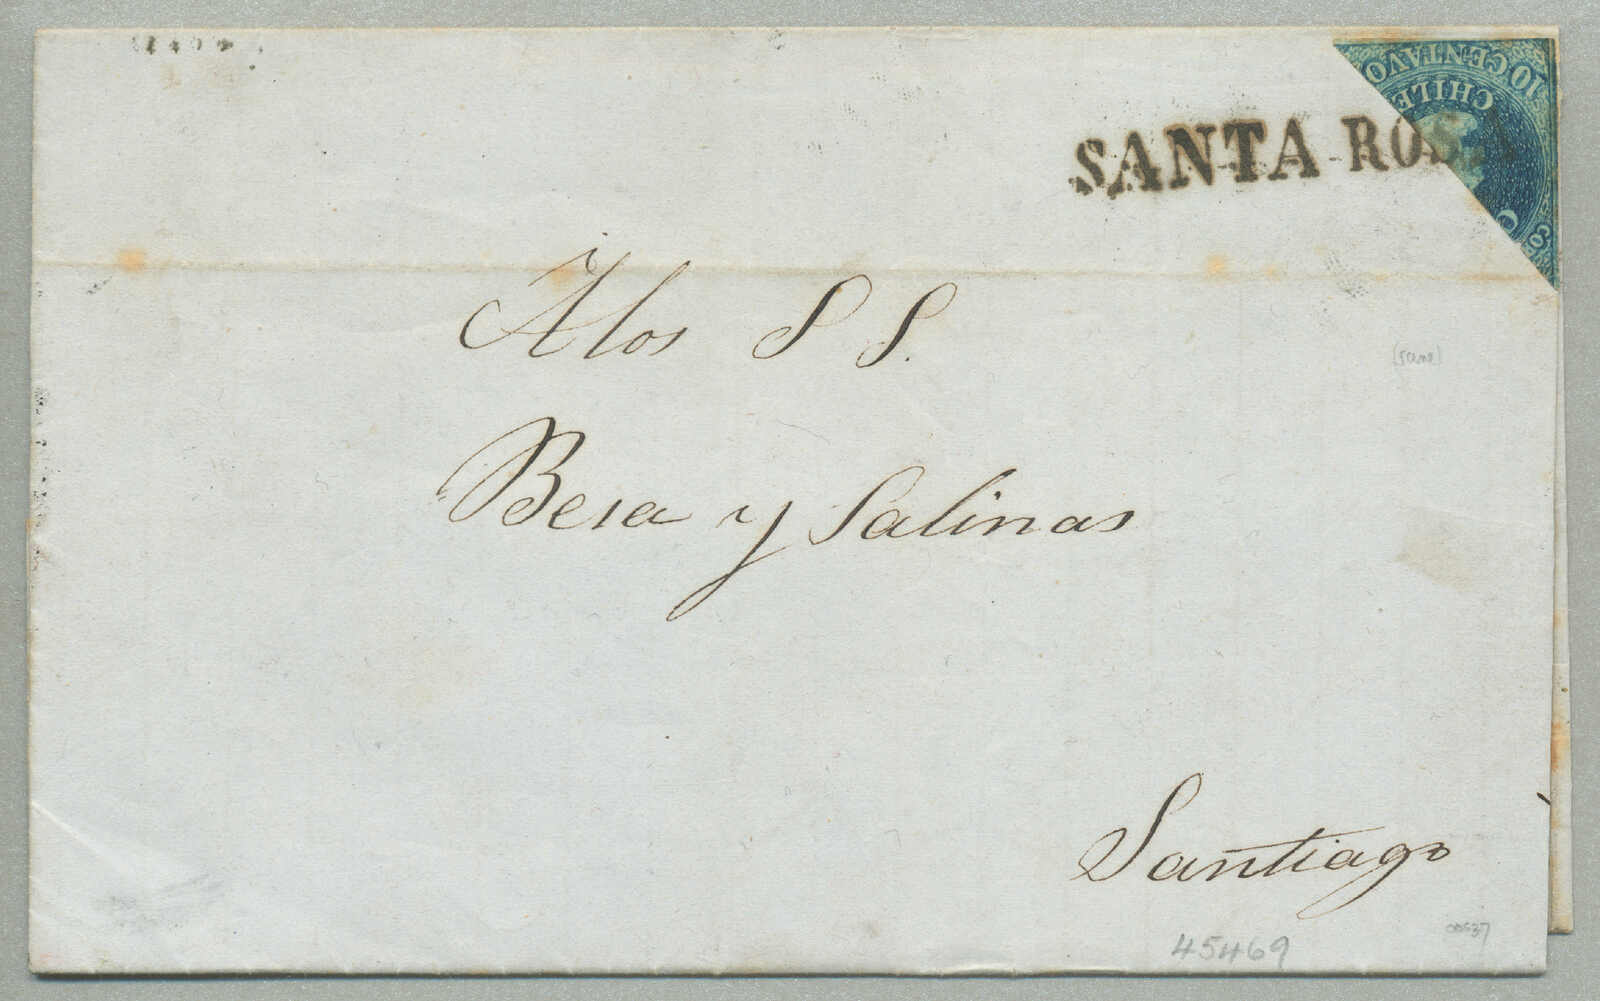 10 CENTAVO
CHILE
Co
SANTA ROSA
A los S S.
Besa y Salinas
Santiago
45469
00537